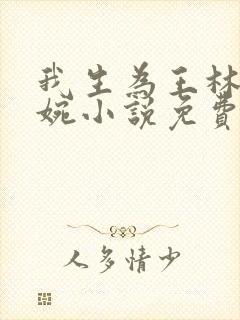 我生為王林
婉小說免費
人多情少